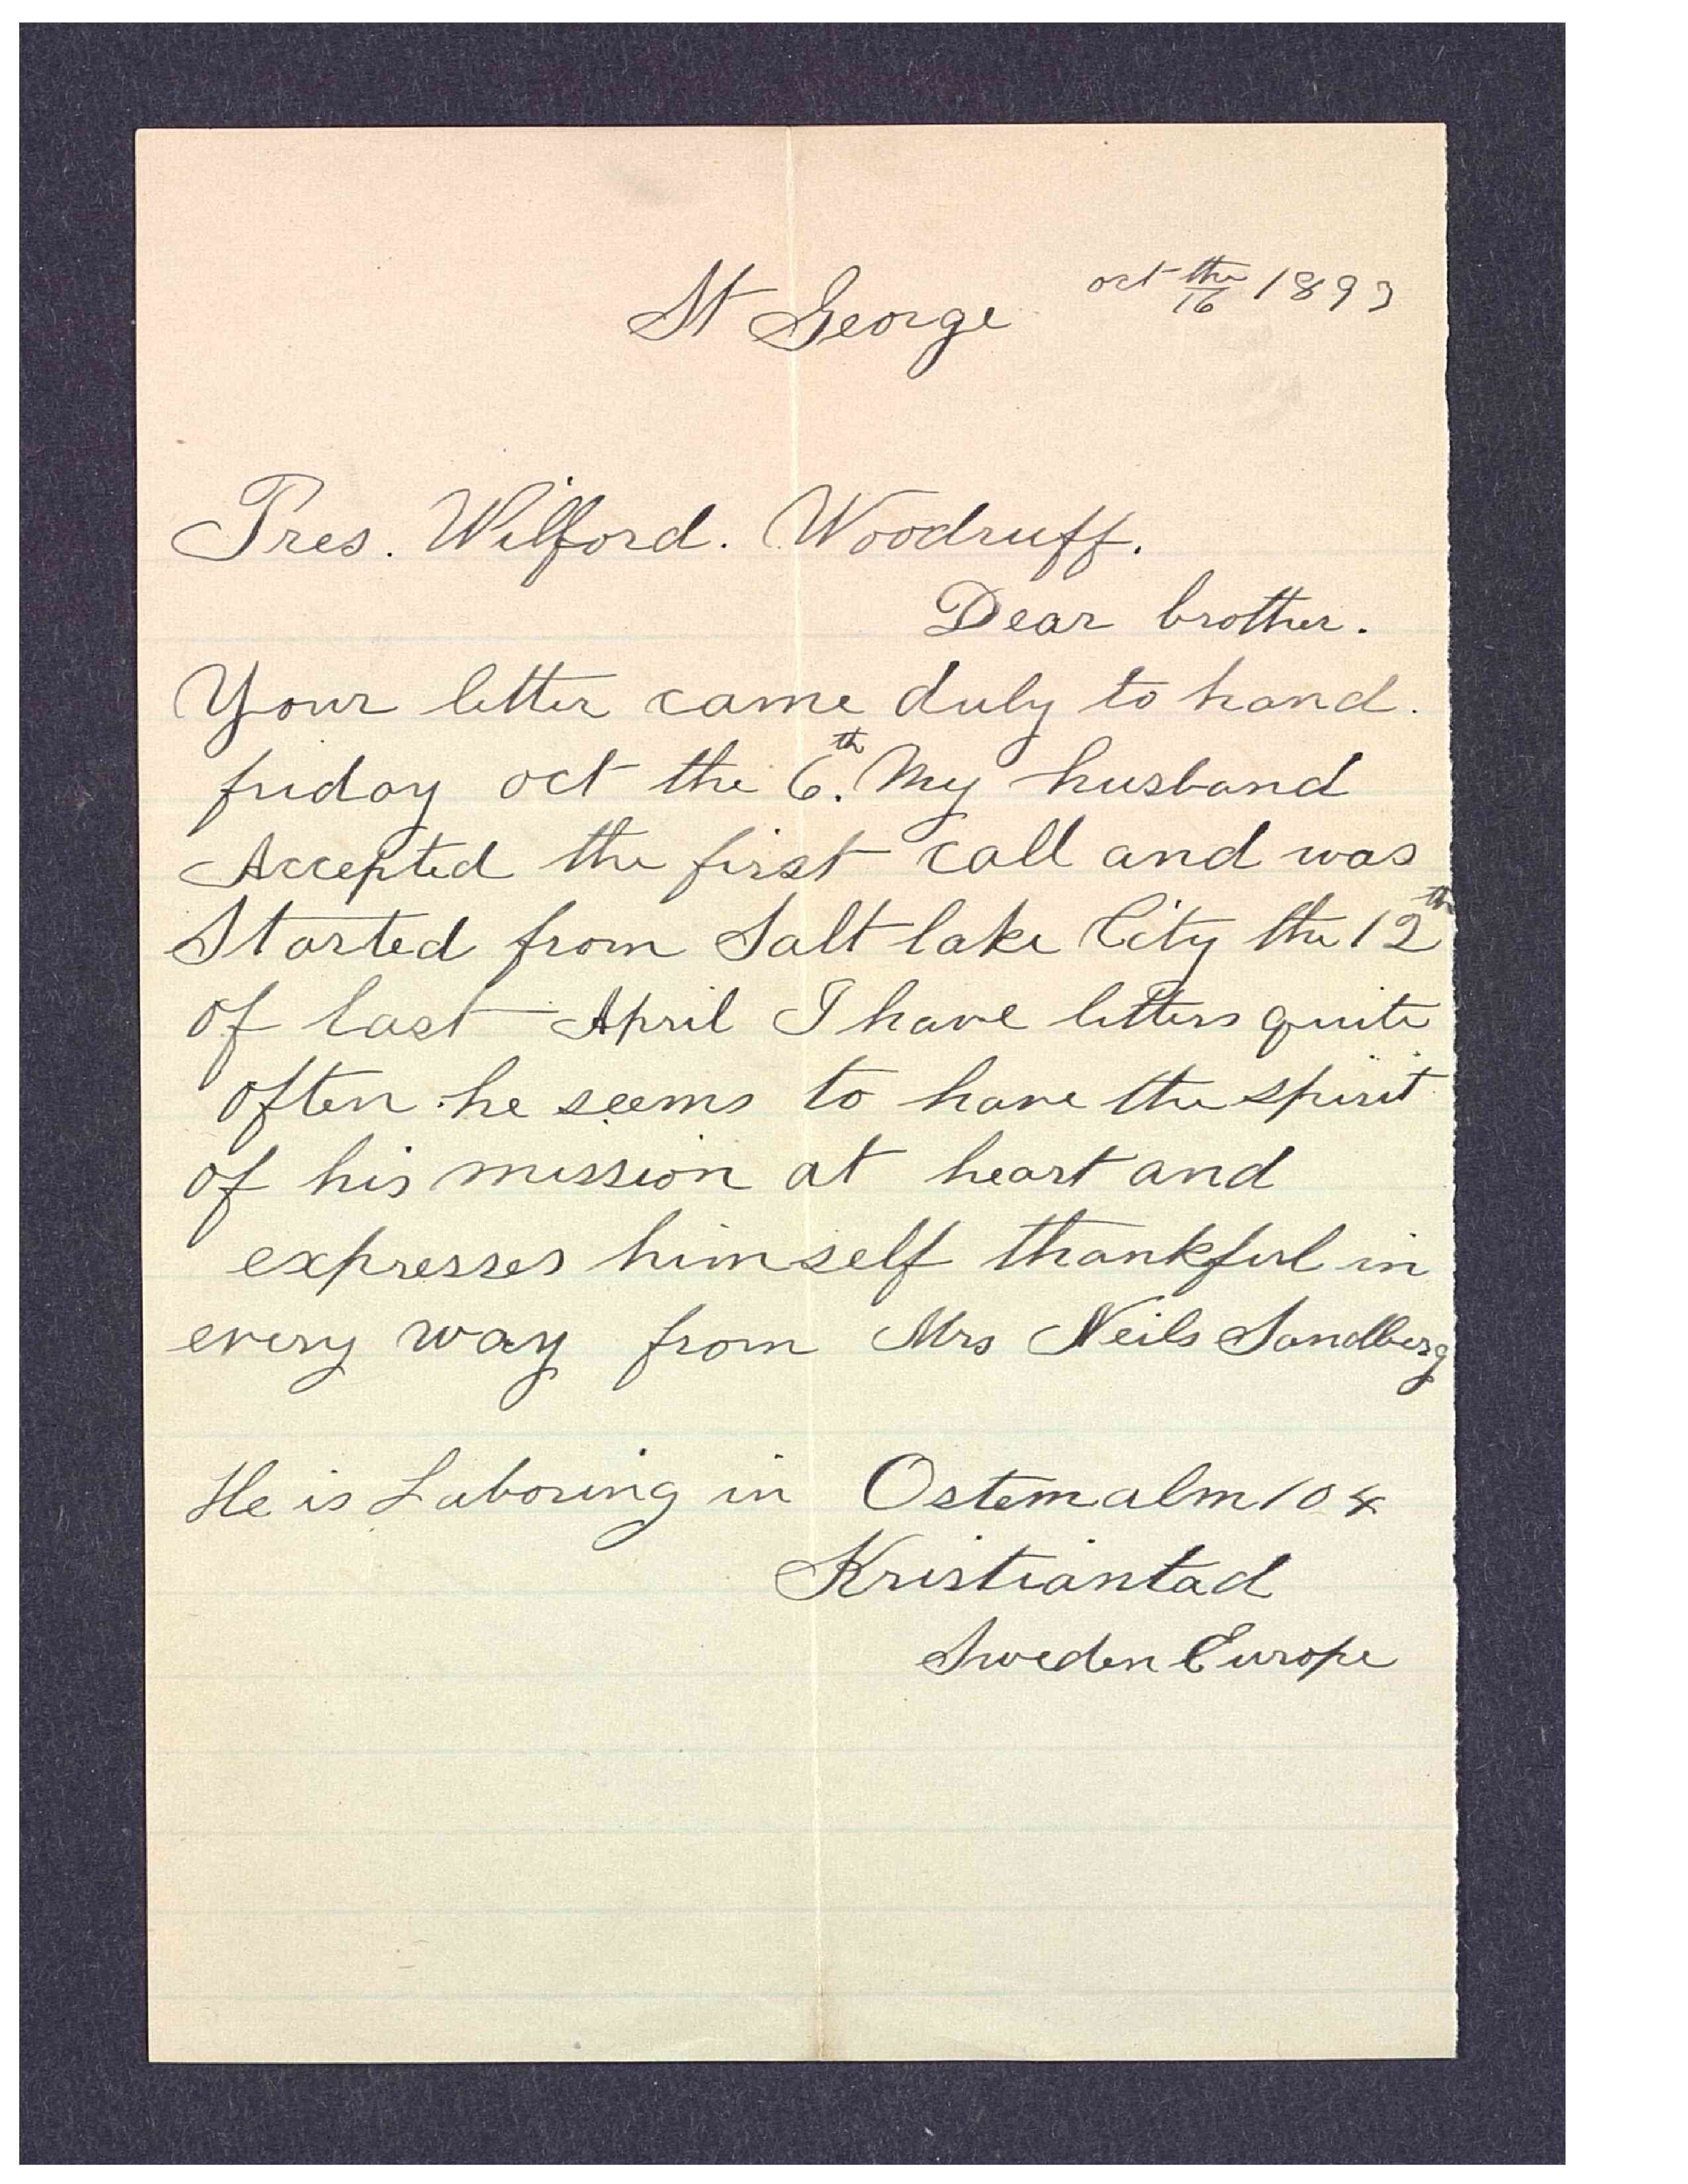 St George oct the 16 1893
Pres. Wilford. Woodruff.
Dear brother.
Your letter came duly to hand.
friday oct the 6th. My husband
Accepted the first call and was
Started from Salt lake City the 12th
of last April I have letters quite
often he seems to have the spirit
of his mission at heart and
expresses himself thankful in
every way from Mrs Neils Sandberg
He is Laboring in Ostemalm 104
Kristiantad
Sweden Europe